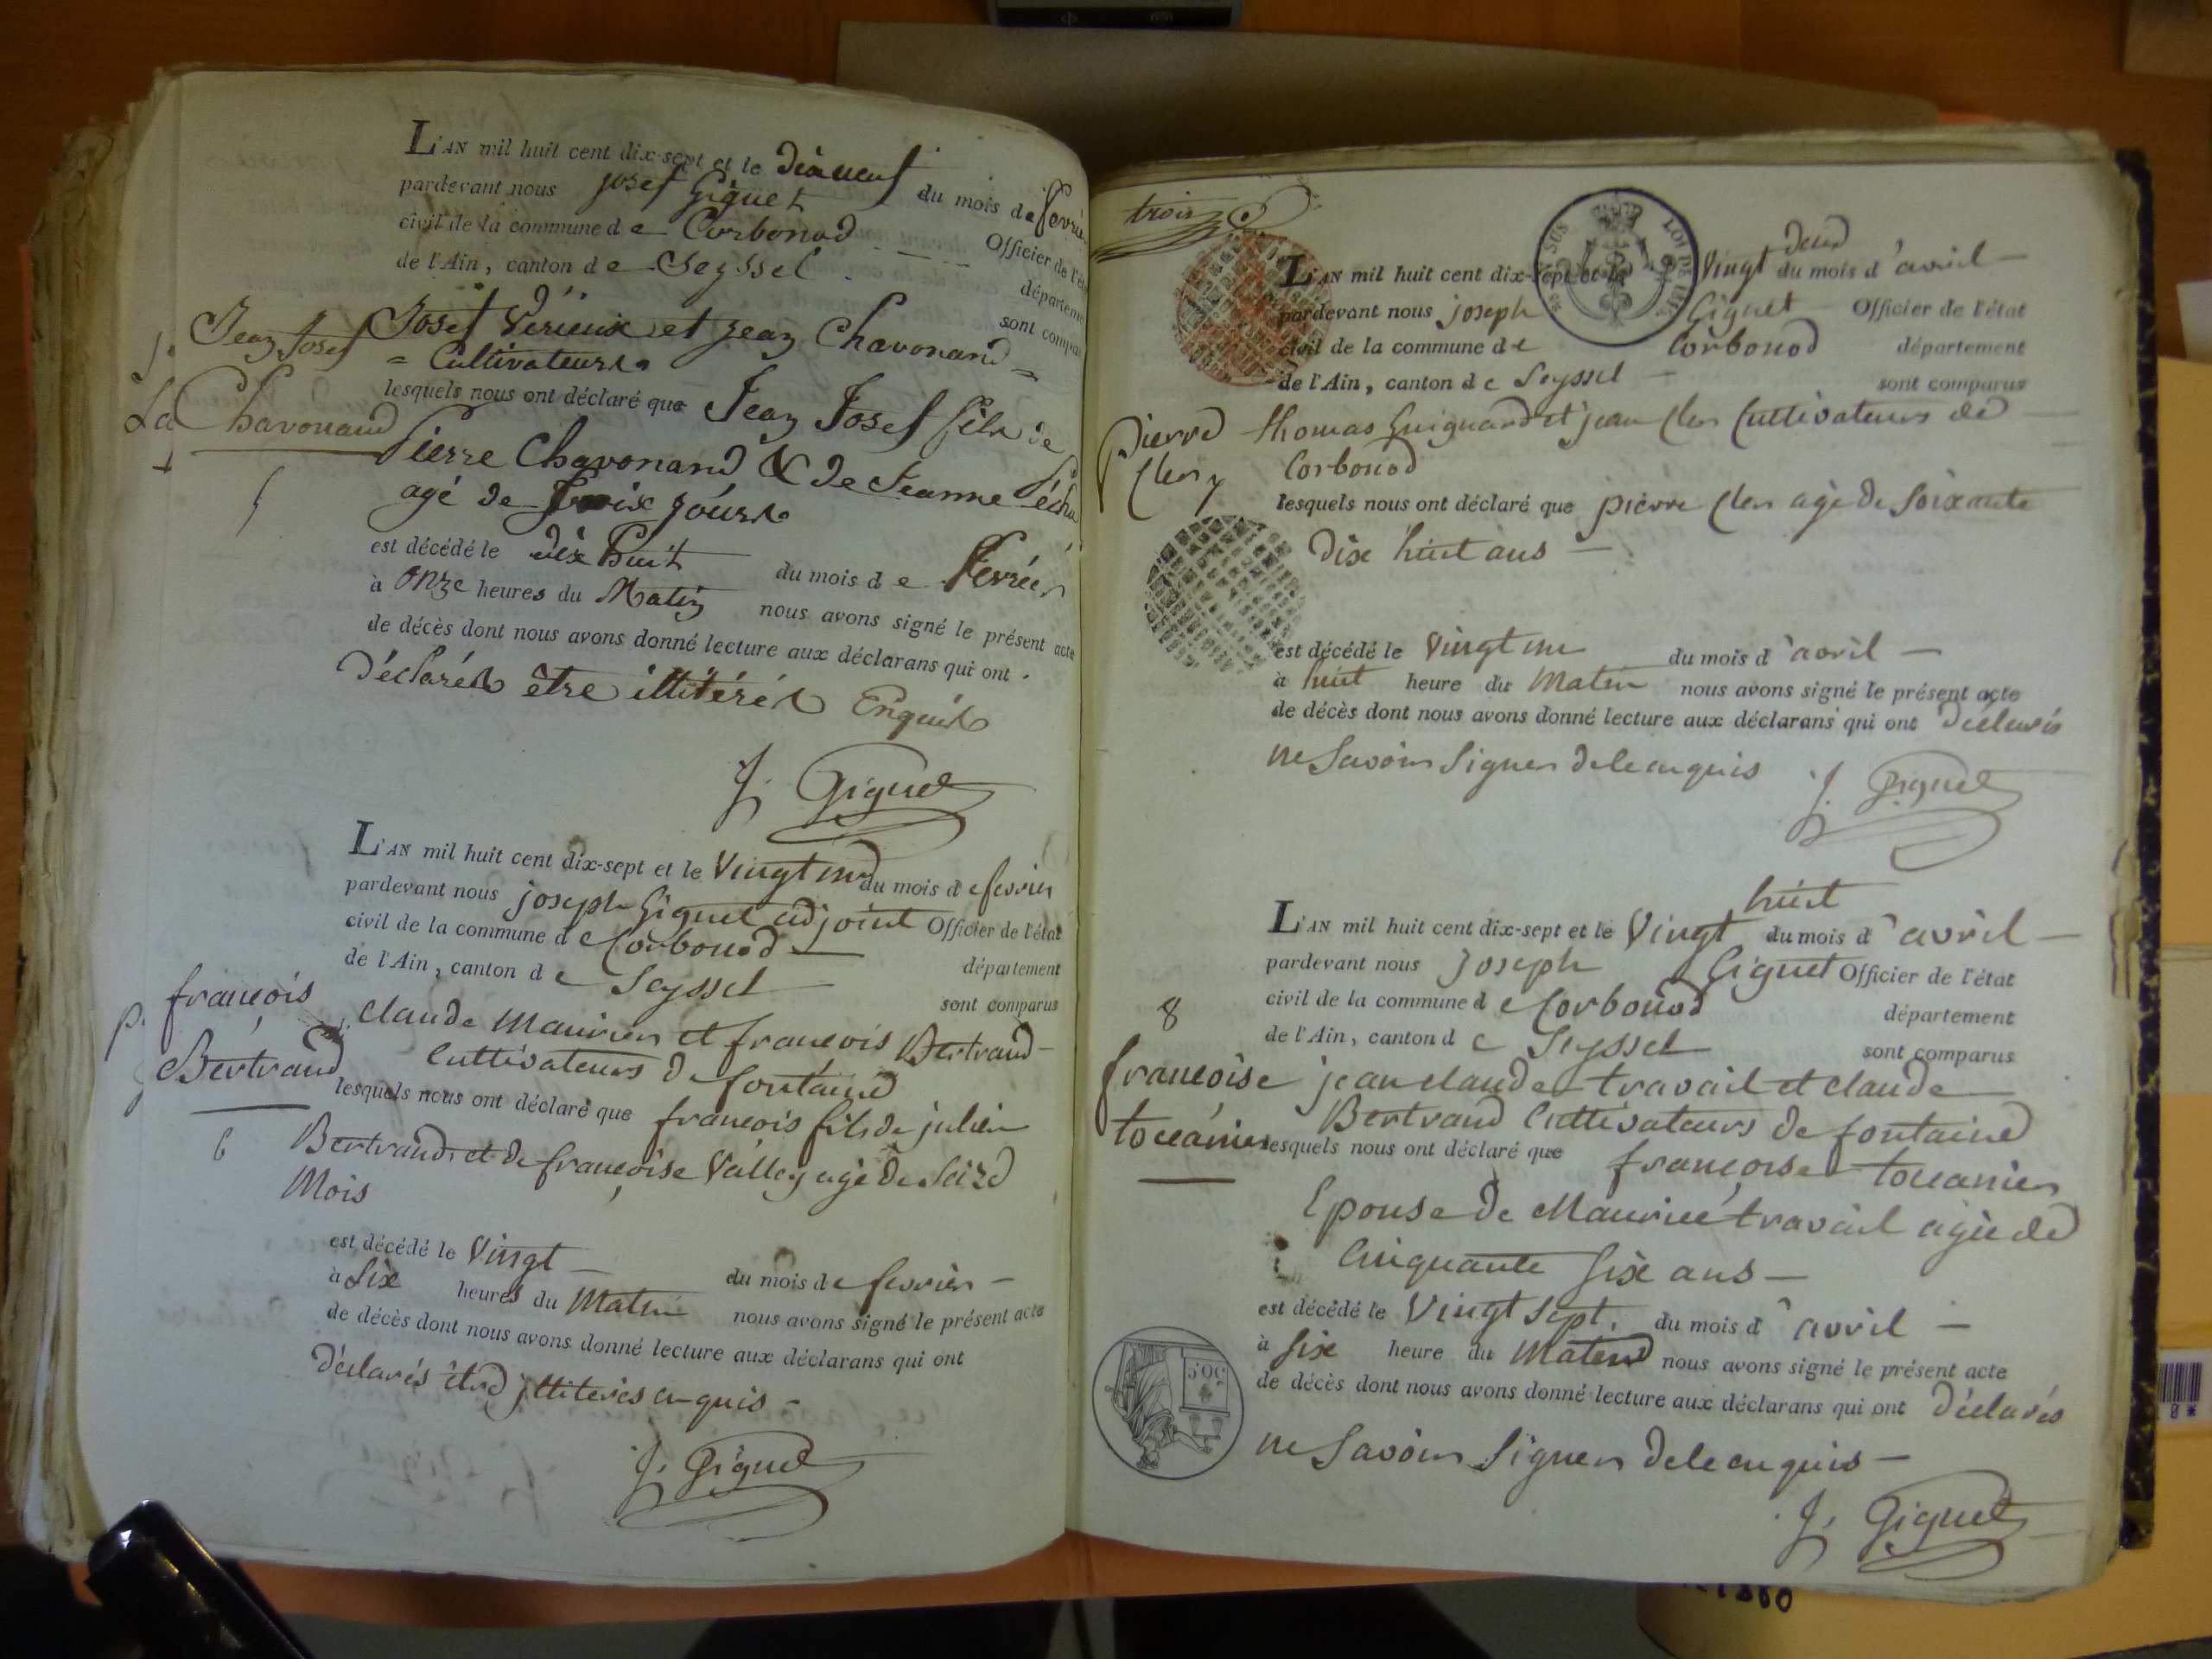 L'AN mil huit cent dix-sept et le dixneuf du mois de fevrier
pardevant nous josef Giguet Officier de l'état
civil de la commune de Corbonod département
de l'Ain, canton de Seyssel sont comparus
Josef Verieux et jean Chavonand
Cultivateurs
lesquels nous ont déclaré que Jean Josef fils de
Pierre Chavonand & de Jeanne
agé de Trois jours
est décédé le dix huit du mois de fevrier
à onze heures du Matin nous avons signé le présent acte
de décès dont nous avons donné lecture aux déclarans qui ont
déclarés être illitérés Enquis
J. Giguet
Jean Josef
Chavonand
5
L'AN mil huit cent dix-sept et le Vingt un du mois de fevrier
pardevant nous joseph Giguet adjoint Officier de l'état
civil de la commune de Corbonod département
de l'Ain, canton de Seyssel sont comparus
claude Maurier et francois Bertrand
Cultivateurs de fontaine
lesquels nous ont déclaré que francois fils de julien
Bertrand et de françoise Valley agé de Seize
Mois
est décédé le Vingt du mois de fevrier
à Six heures du Matin nous avons signé le présent acte
de décès dont nous avons donné lecture aux déclarans qui ont
déclarés être illiterés enquis
J. Giguet
françois
Bertrand
6
trois
L'AN mil huit cent dix-sept et le Vingt deux du mois d'avril
pardevant nous joseph Giguet Officier de l'état
civil de la commune de Corbonod département
de l'Ain, canton de Seyssel sont comparus
thomas Guignard et jean Cler Cultivateurs de
Corbonod
lesquels nous ont déclaré que pierre Cler agé de soixante
Dix huit ans
est décédé le Vingt un du mois d'avril
à huit heure du Matin nous avons signé le présent acte
de décès dont nous avons donné lecture aux déclarans qui ont déclarés
ne Savoir Signer de le enquis
J. Giguet
Pierre
Cler 7
L'AN mil huit cent dix-sept et le Vingt huit du mois d'avril
pardevant nous joseph Giguet Officier de l'état
civil de la commune de Corbonod département
de l'Ain, canton de Seyssel sont comparus
jean claude travail et claude
Bertrand Cultivateurs de fontaine
lesquels nous ont déclaré que françoise toccanier
Epouse de Maurice travail agée de
Cinquante Six ans
est décédé le Vingt Sept du mois d'avril
à Six heure du Matin nous avons signé le présent acte
de décès dont nous avons donné lecture aux déclarans qui ont déclarés
ne Savoir Signer de le enquis
J. Giguet
8
françoise
toccanier
50C